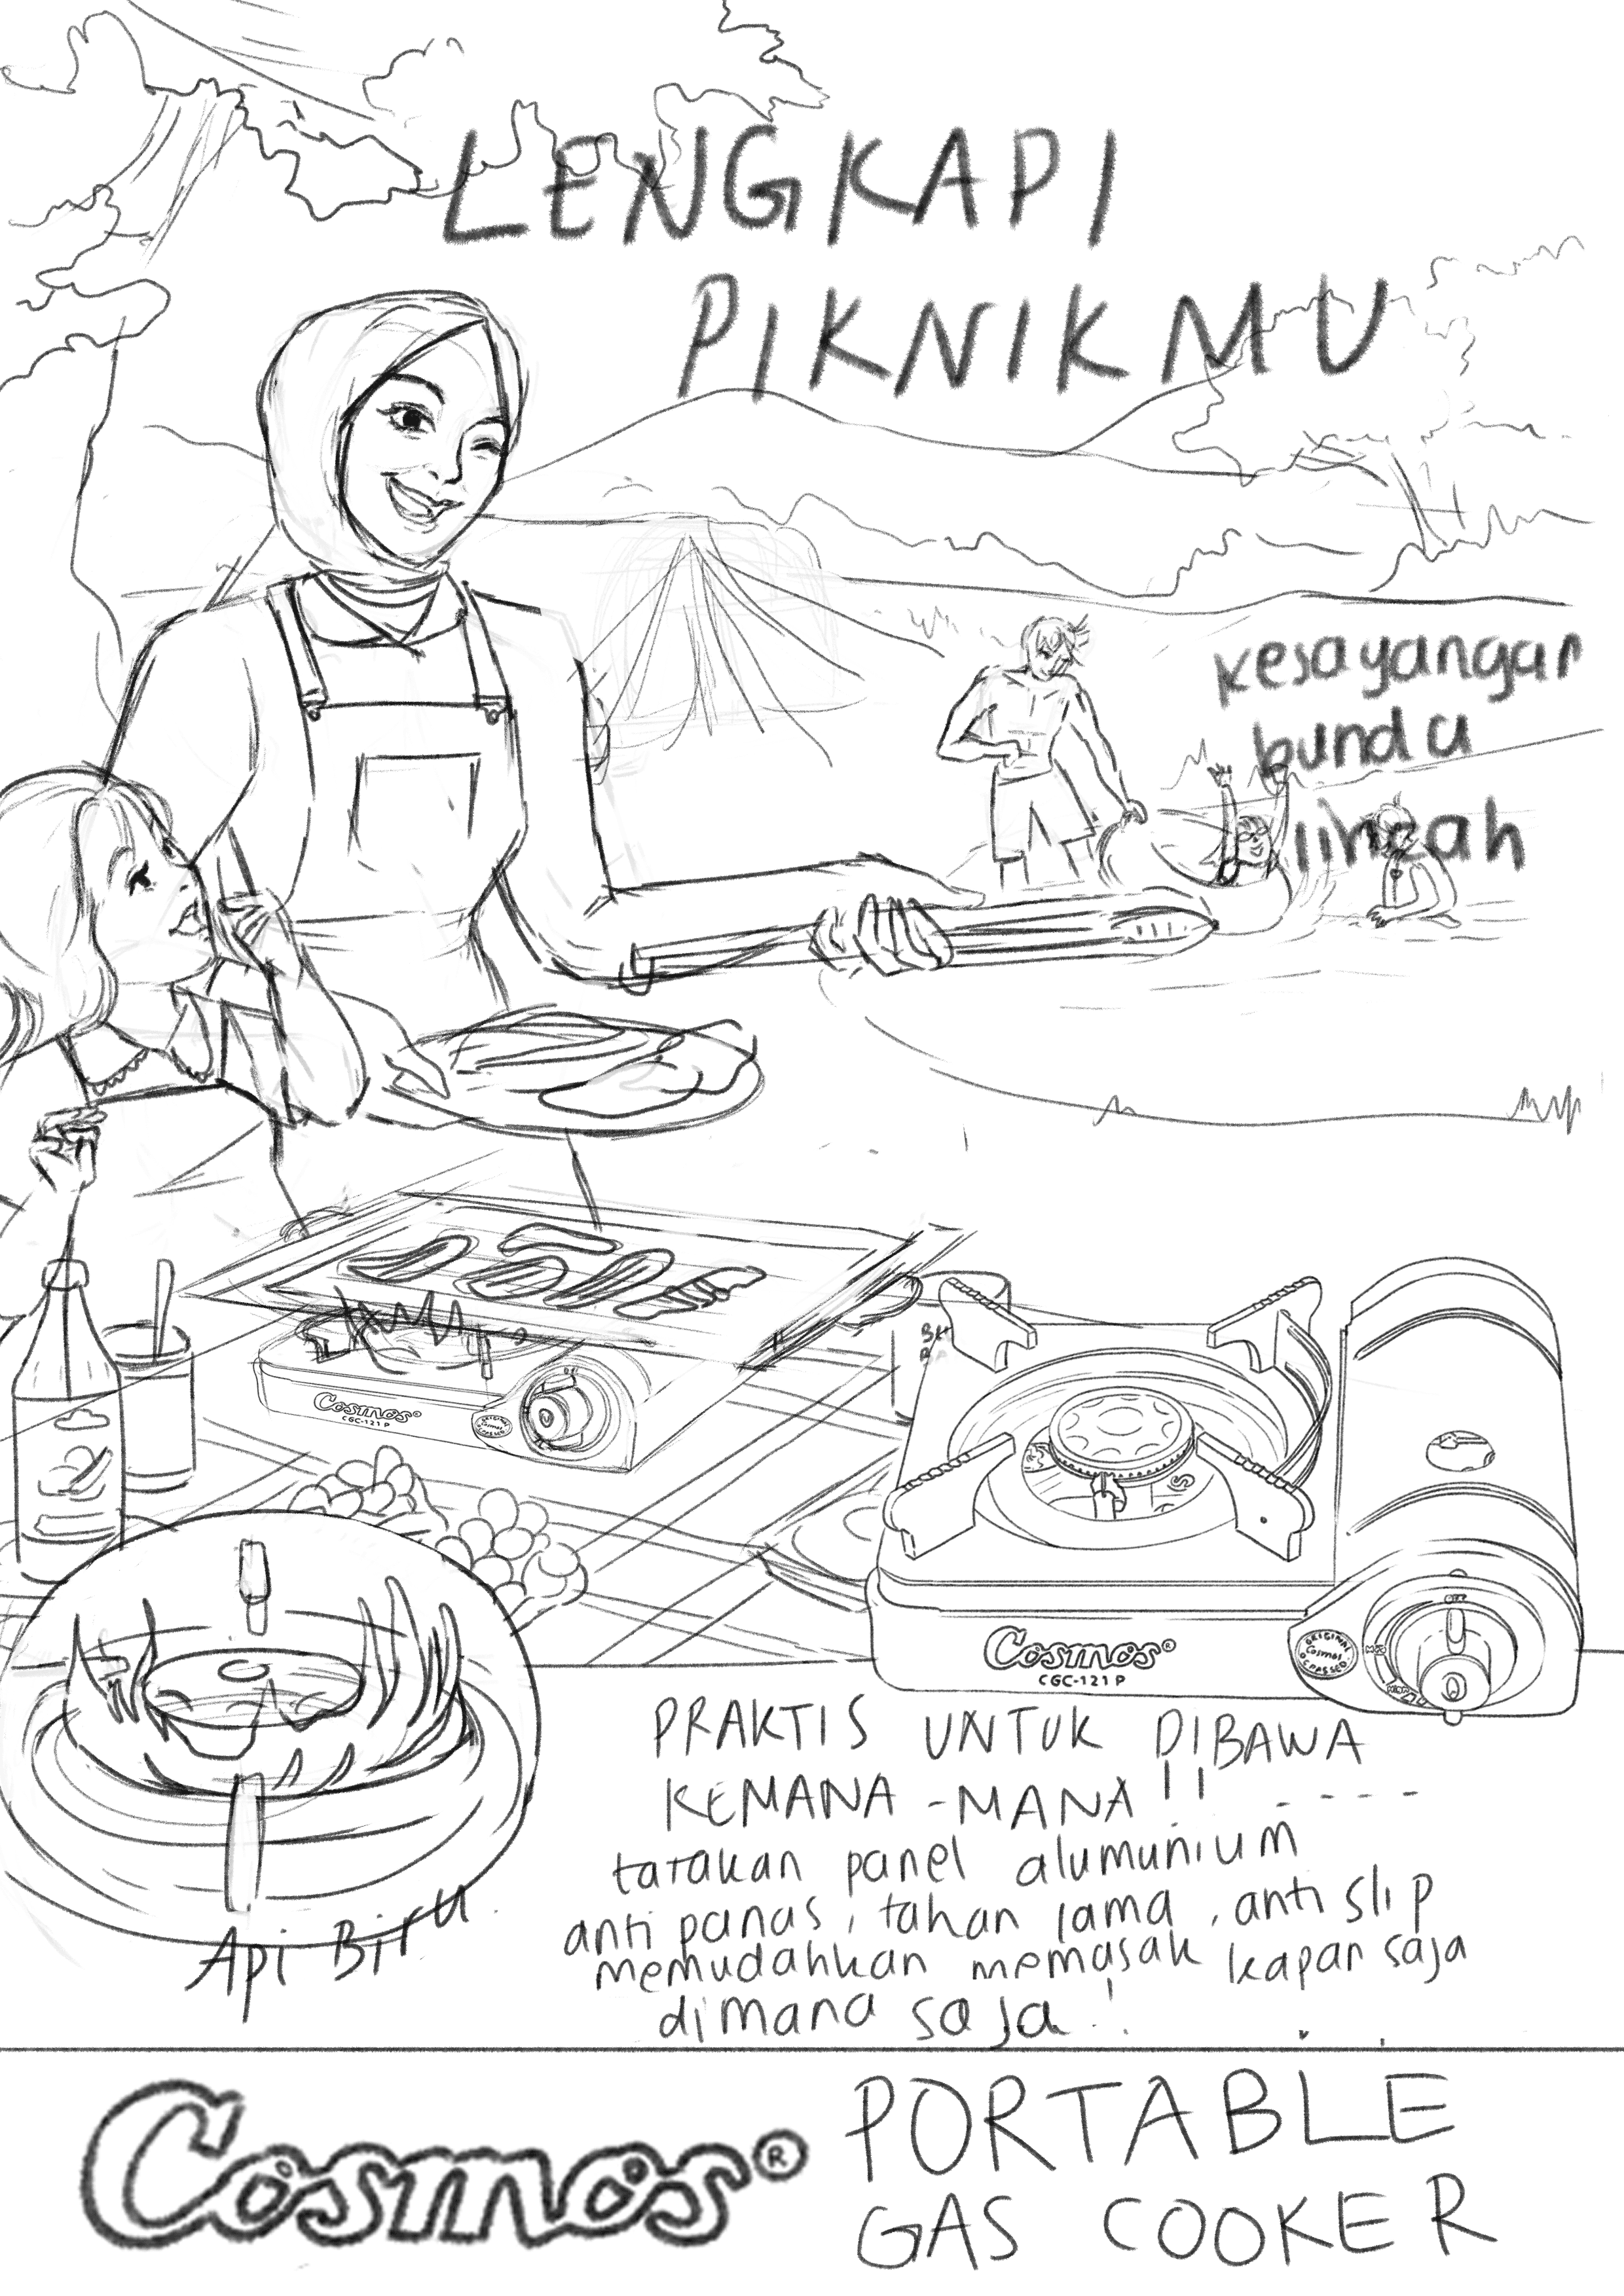 LENGKAPI
PIKNIKMU
kesayangan
bunda
lincah
Cosmos
CGC-121 P
ORIGINAL
Cosmos
Cosmos®
CGC-121 P
ORIGINAL
Cosmos
OFF
PRAKTIS UNTUK DIBAWA
KEMANA-MANA!!
tatakan panel alumunium
anti panas, tahan lama, anti slip
memudahkan memasak kapan saja
dimana saja!
Api Biru
Cosmos®
PORTABLE
GAS COOKER